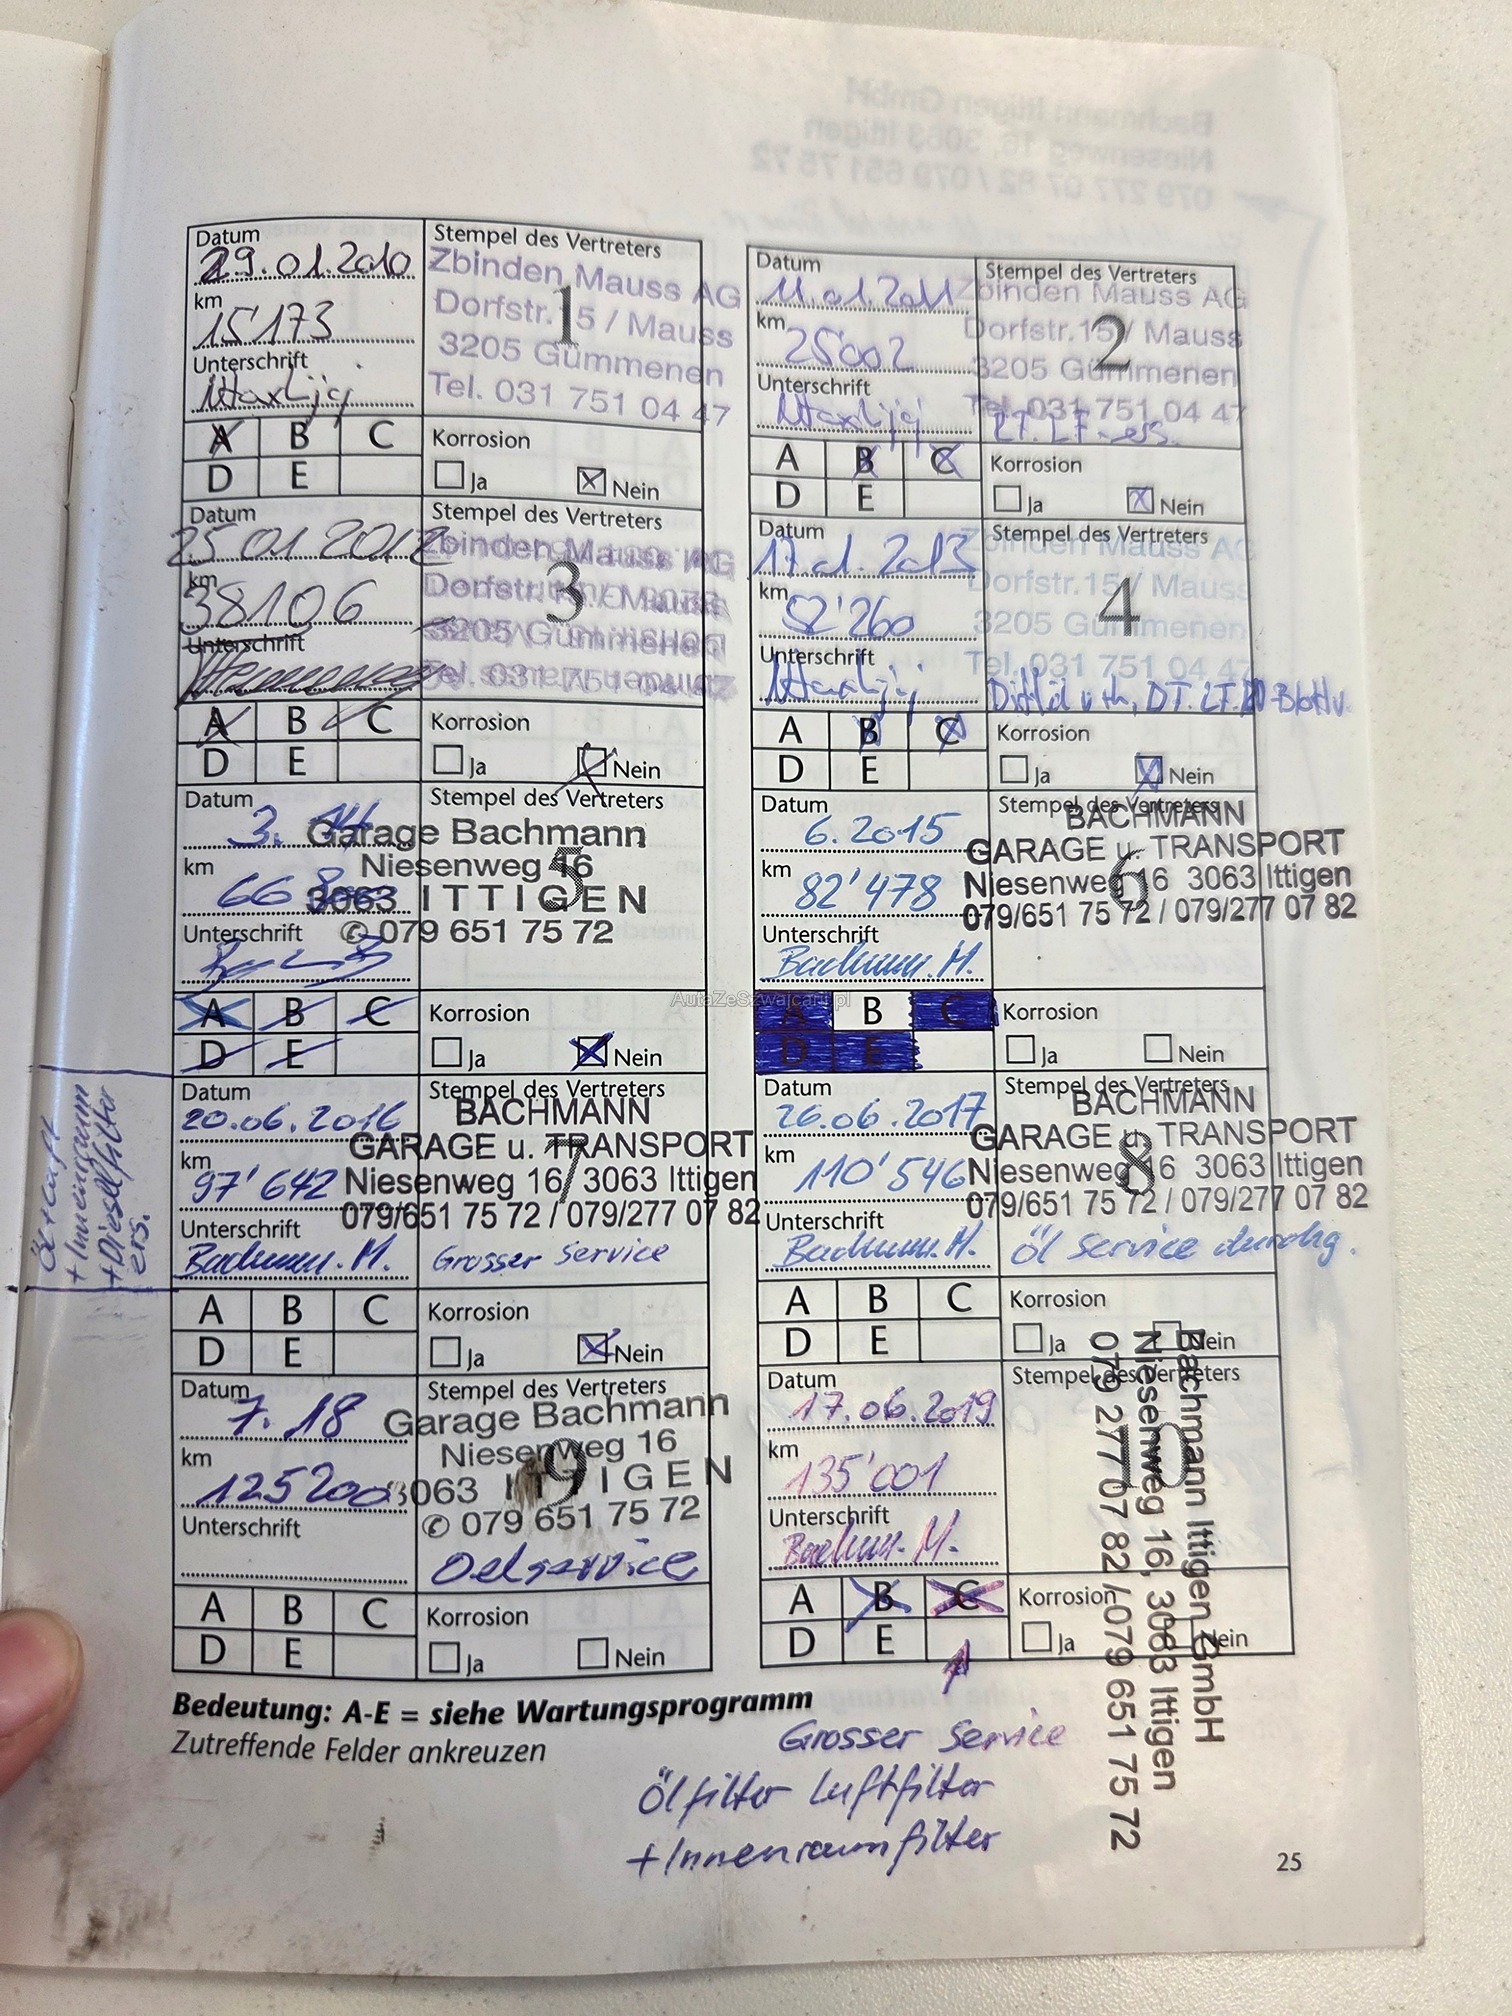 Datum
29.01.2010
km
15'173
Unterschrift
Stempel des Vertreters
1
Zbinden Mauss AG
Dorfstr.15 / Mauss
3205 Gümmenen
Tel. 031 751 04 47
A B C
D E
Korrosion
Ja Nein
Datum
11.01.2011
km
25'002
Unterschrift
Stempel des Vertreters
2
Zbinden Mauss AG
Dorfstr.15 / Mauss
3205 Gümmenen
Tel. 031 751 04 47
A B C
D E
Korrosion
Ja Nein
Datum
25 01 2012
km
38106
Unterschrift
Stempel des Vertreters
3
Zbinden Mauss AG
3205 Gümmenen
A B C
D E
Korrosion
Ja Nein
Datum
17.01.2013
km
52'260
Unterschrift
Stempel des Vertreters
4
Zbinden Mauss AG
Dorfstr.15 / Mauss
3205 Gümmenen
Tel. 031 751 04 47
A B C
D E
Korrosion
Ja Nein
Datum
3. 14
km
Unterschrift
Stempel des Vertreters
5
Garage Bachmann
Niesenweg 16
3063 ITTIGEN
✆ 079 651 75 72
A B C
D E
Korrosion
Ja Nein
Datum
6.2015
km
82'478
Unterschrift
Bachmann M.
Stempel des Vertreters
6
BACHMANN
GARAGE u. TRANSPORT
Niesenweg 16 3063 Ittigen
079/651 75 72 / 079/277 07 82
A B C
D E
Korrosion
Ja Nein
+ Innenraum
+ Dieselfilter
ers.
Datum
20.06.2016
km
97'642
Unterschrift
Bachmann. M.
Stempel des Vertreters
7
BACHMANN
GARAGE u. TRANSPORT
Niesenweg 16 3063 Ittigen
079/651 75 72 / 079/277 07 82
Grosser Service
A B C
D E
Korrosion
Ja Nein
Datum
26.06.2017
km
110'546
Unterschrift
Bachmann. M.
Stempel des Vertreters
8
BACHMANN
GARAGE u. TRANSPORT
Niesenweg 16 3063 Ittigen
079/651 75 72 / 079/277 07 82
Öl Service durchg.
A B C
D E
Korrosion
Ja Nein
Datum
7. 18
km
125200
Unterschrift
Stempel des Vertreters
9
Garage Bachmann
Niesenweg 16
3063 ITTIGEN
✆ 079 651 75 72
Oelservice
A B C
D E
Korrosion
Ja Nein
Datum
17.06.2019
km
135'001
Unterschrift
Bachmann. M.
Stempel des Vertreters
10
Bachmann Ittigen GmbH
Niesenweg 16, 3063 Ittigen
079 277 07 82 / 079 651 75 72
A B C
D E
Korrosion
Ja Nein
Bedeutung: A-E = siehe Wartungsprogramm
Zutreffende Felder ankreuzen
Grosser Service
Ölfilter Luftfilter
+ Innenraumfilter
25
AutaZeSzwajcarii.pl